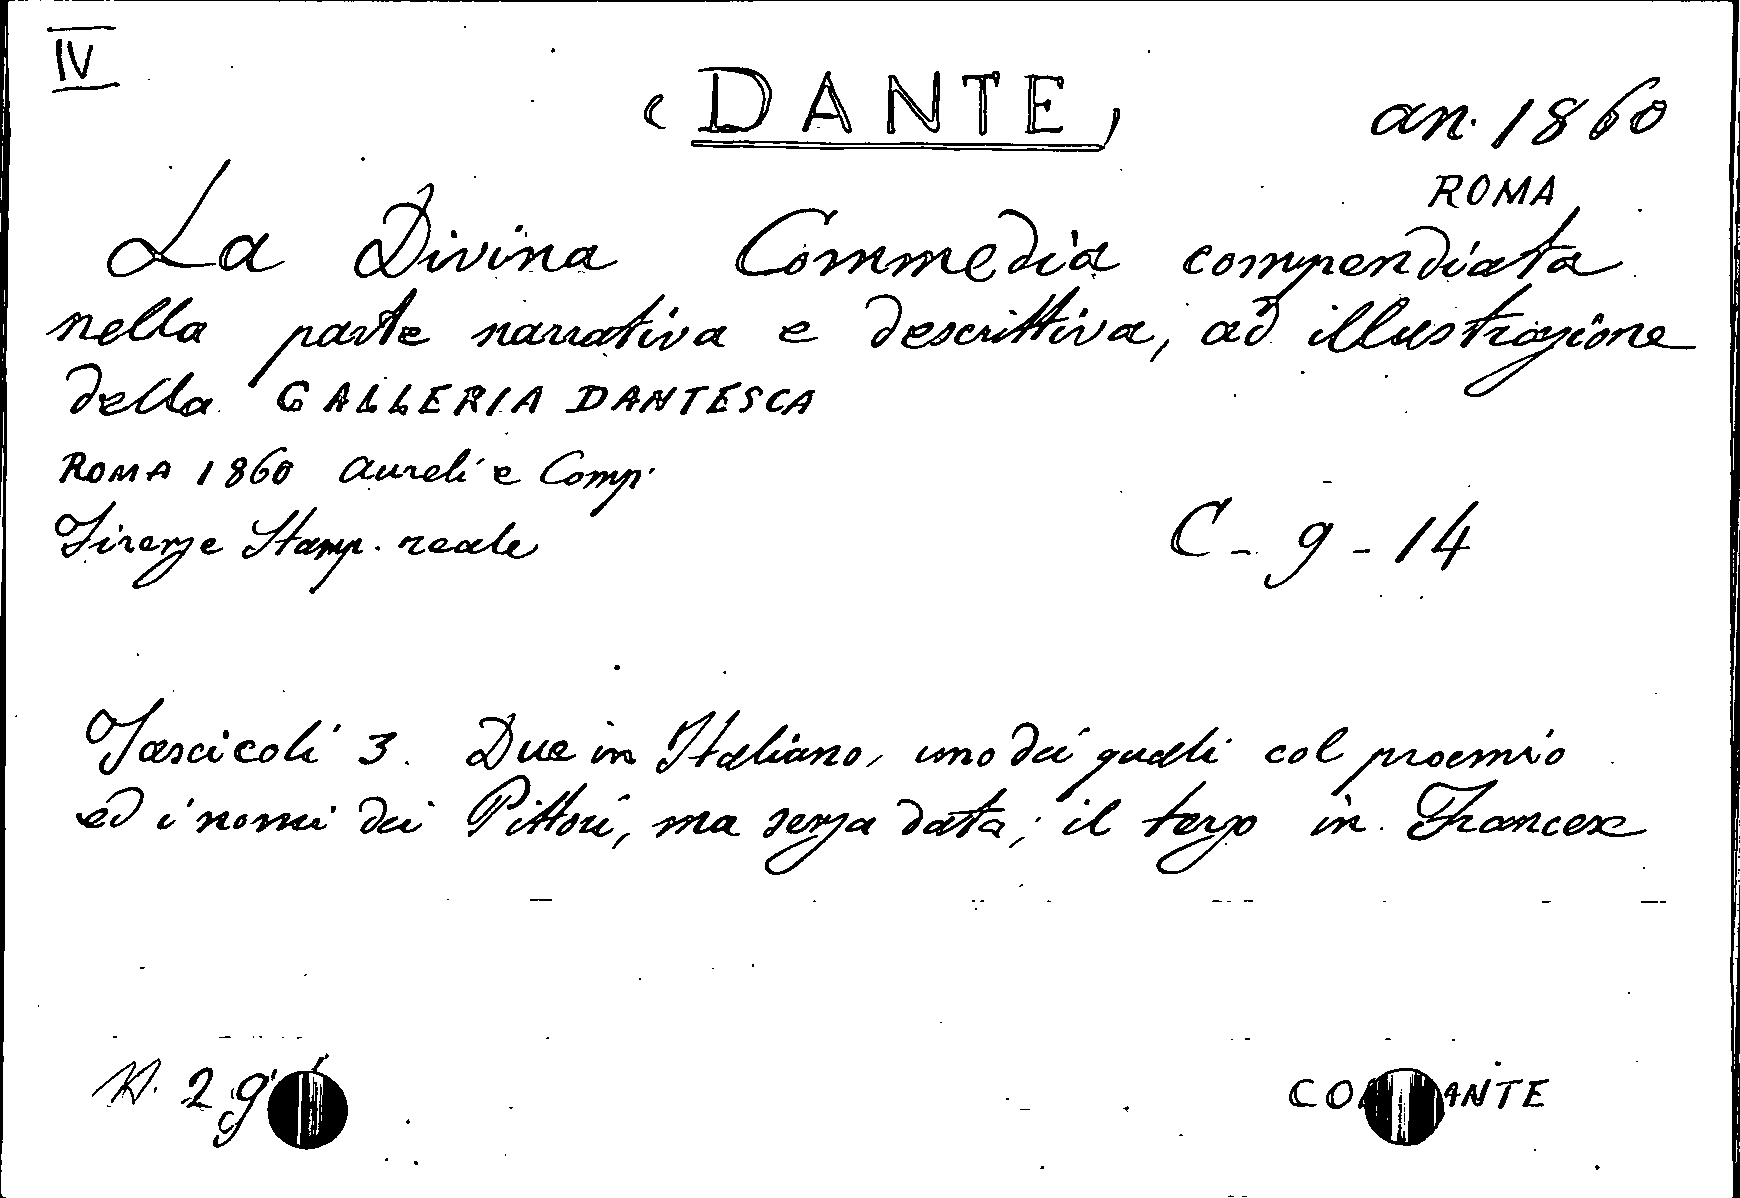 IV
(DANTE) an. 1860
ROMA
La Divina Commedia compendiata
nella parte narrativa e descrittiva, ad illustrazione
della GALLERIA DANTESCA
ROMA 1860 Aureli e Comp.
Firenze Stamp. reale
C - 9 - 14
Fascicoli 3. Due in Italiano, uno dei quali col proemio
ed i nomi dei Pittori, ma senza data; il terzo in Francese
N. 29